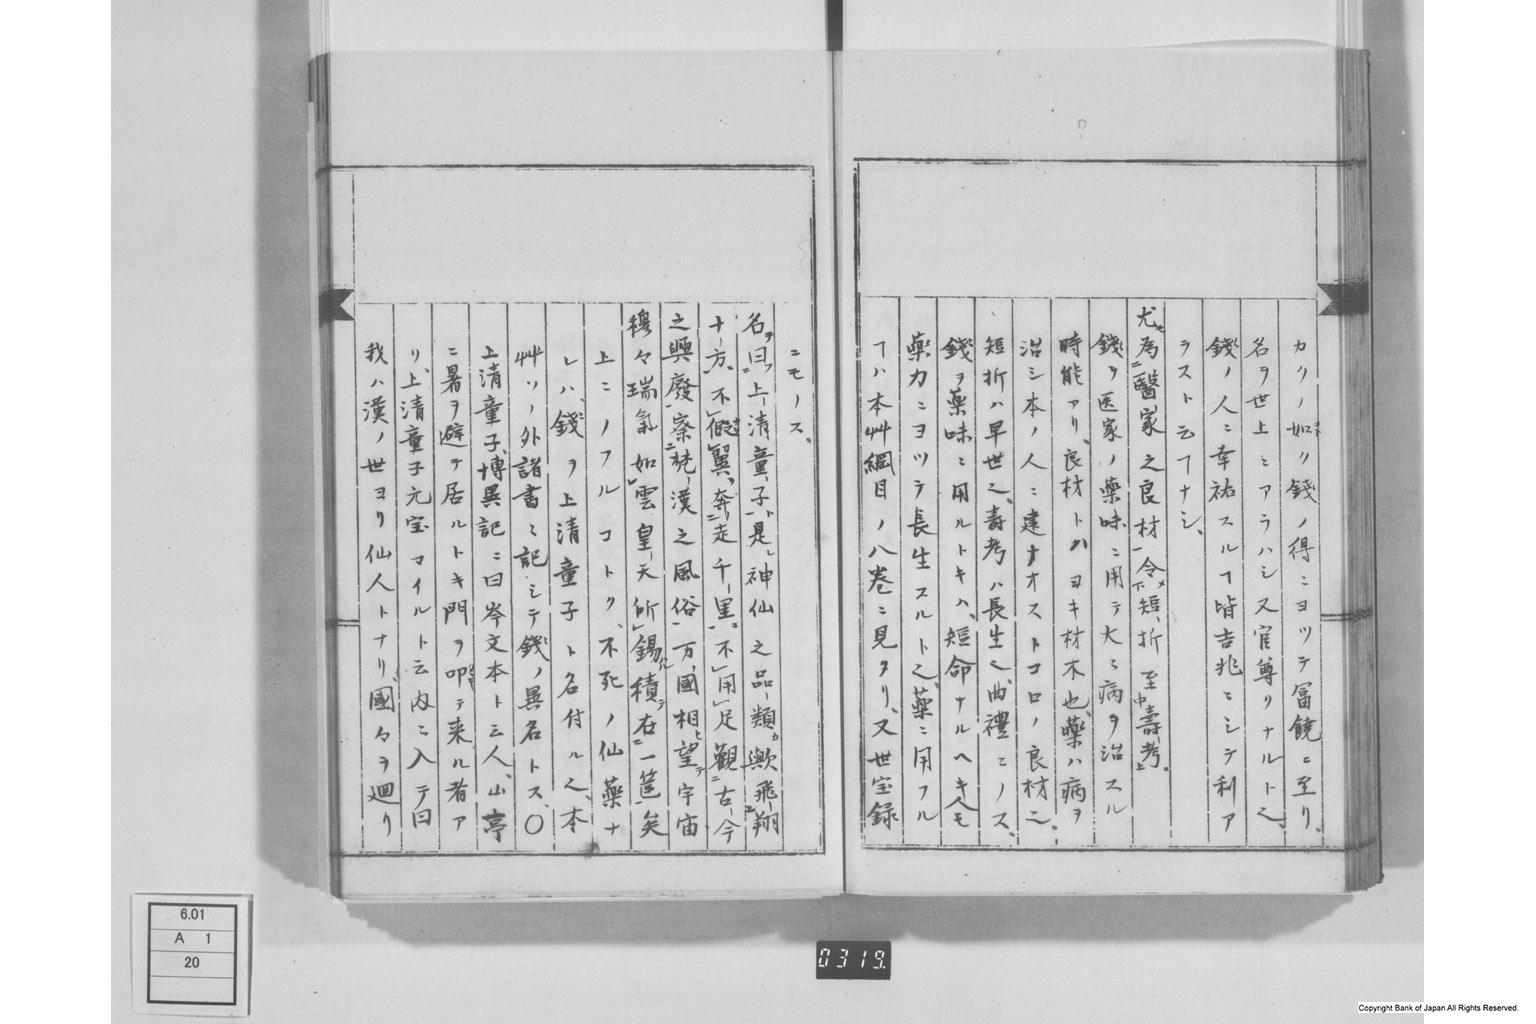 カクノ如ク錢ノ得ニヨツテ冨饒ニ至リ、
名ヲ世上ニアラハシ又官尊クナルト之、
錢ノ人ニ幸祐スルヿ皆吉兆ニシテ利ア
ラスト云ヿナシ、
尤為醫家之良材令短折至壽考
錢ヲ医家ノ藥味ニ用テ大ニ病ヲ治スル
時能アリ、良材トハヨキ材木也、藥ハ病ヲ
治シ本ノ人ニ建ナオストコロノ良材之、
短折ハ早世之、壽考ハ長生之、曲禮ニノス、
錢ヲ藥味ニ用ルトキハ、短命ナルヘキ人モ
藥力ニヨツテ長生スルト之、藥ニ用フル
ヿハ本艸綱目ノ八巻ニ見タリ、又世宝録
ニモノス、
名曰上清童子是神仙之品類歟飛翔
十方不假翼奔走千里不用足觀古今
之興廢察梵漢之風俗万國相望宇宙
穆々瑞氣如雲皇天所錫積在一筐矣
上ニノフルコトク、不死ノ仙藥ナ
レハ、錢ヲ上清童子ト名付ル之、本
艸ソノ外諸書ニ記シテ錢ノ異名トス、〇
上清童子、博異記ニ曰岑文本ト云人、山亭
ニ暑ヲ避テ居ルトキ門ヲ叩テ来ル者ア
リ、上清童子元宝マイルト云内ニ入テ曰
我ハ漢ノ世ヨリ仙人トナリ、國々ヲ廻リ
6.01
A 1
20
0319.
Copyright Bank of Japan All Rights Reserved.